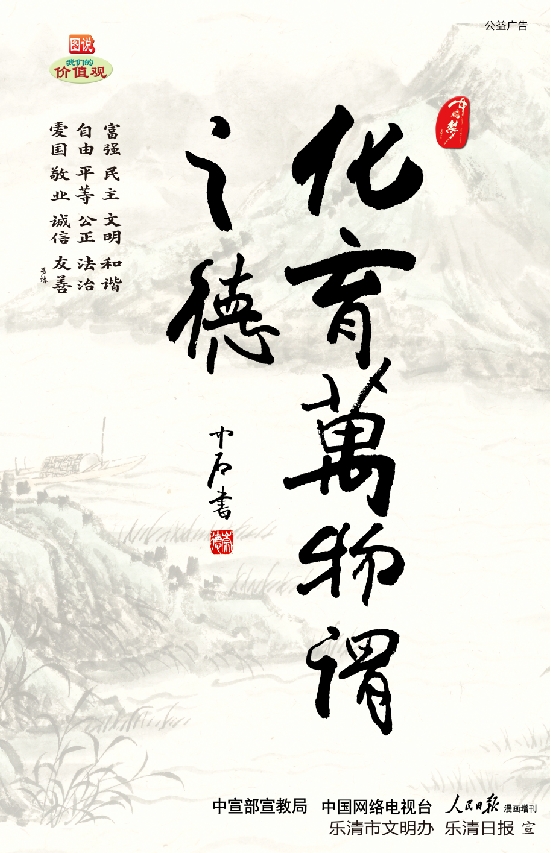 公益广告
图说
我们的
价值观
中国梦
化育萬物謂
之德
中石書
富强 民主 文明 和谐
自由 平等 公正 法治
爱国 敬业 诚信 友善
中宣部宣教局 中国网络电视台 人民日报 漫画增刊
乐清市文明办 乐清日报 宣